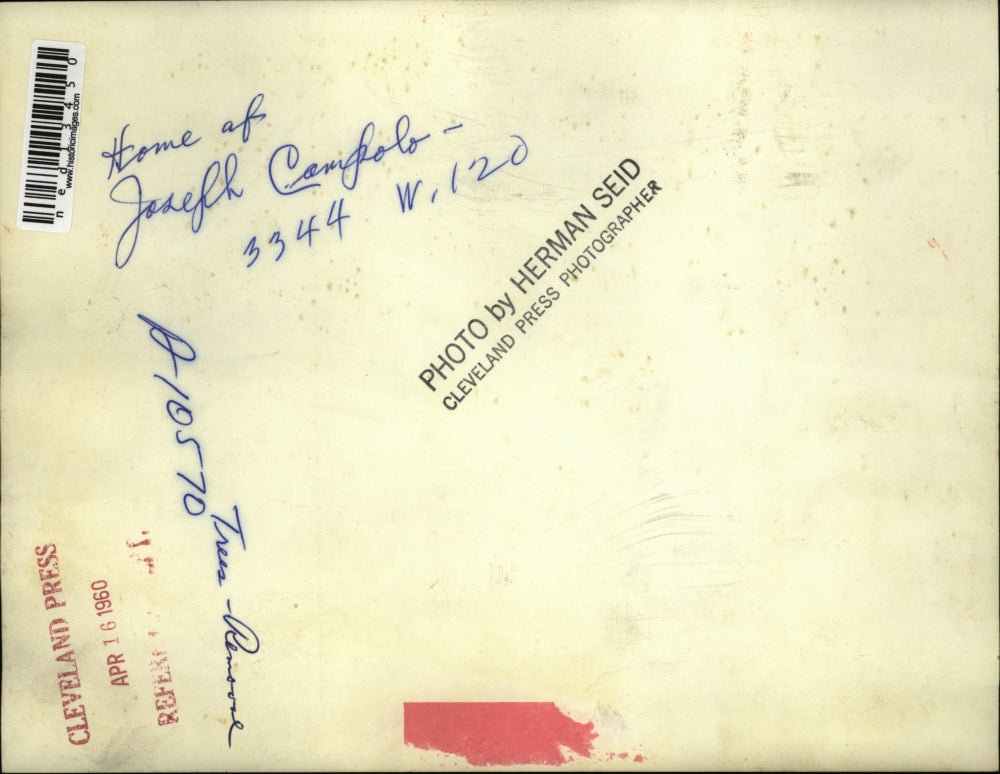 Home of
Joseph Campolo -
3344 W. 120
PHOTO by HERMAN SEID
CLEVELAND PRESS PHOTOGRAPHER
A-10570
Trees - Removal
CLEVELAND PRESS
APR 16 1960
www.historicimages.com